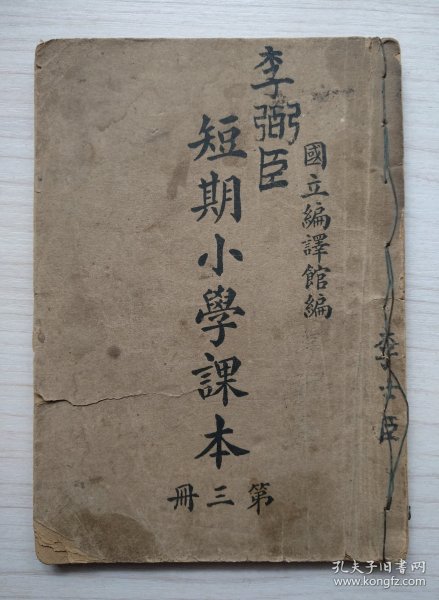 李弼臣
國立編譯館編
短期小學課本
第三冊
孔夫子旧书网
www.kongfz.com